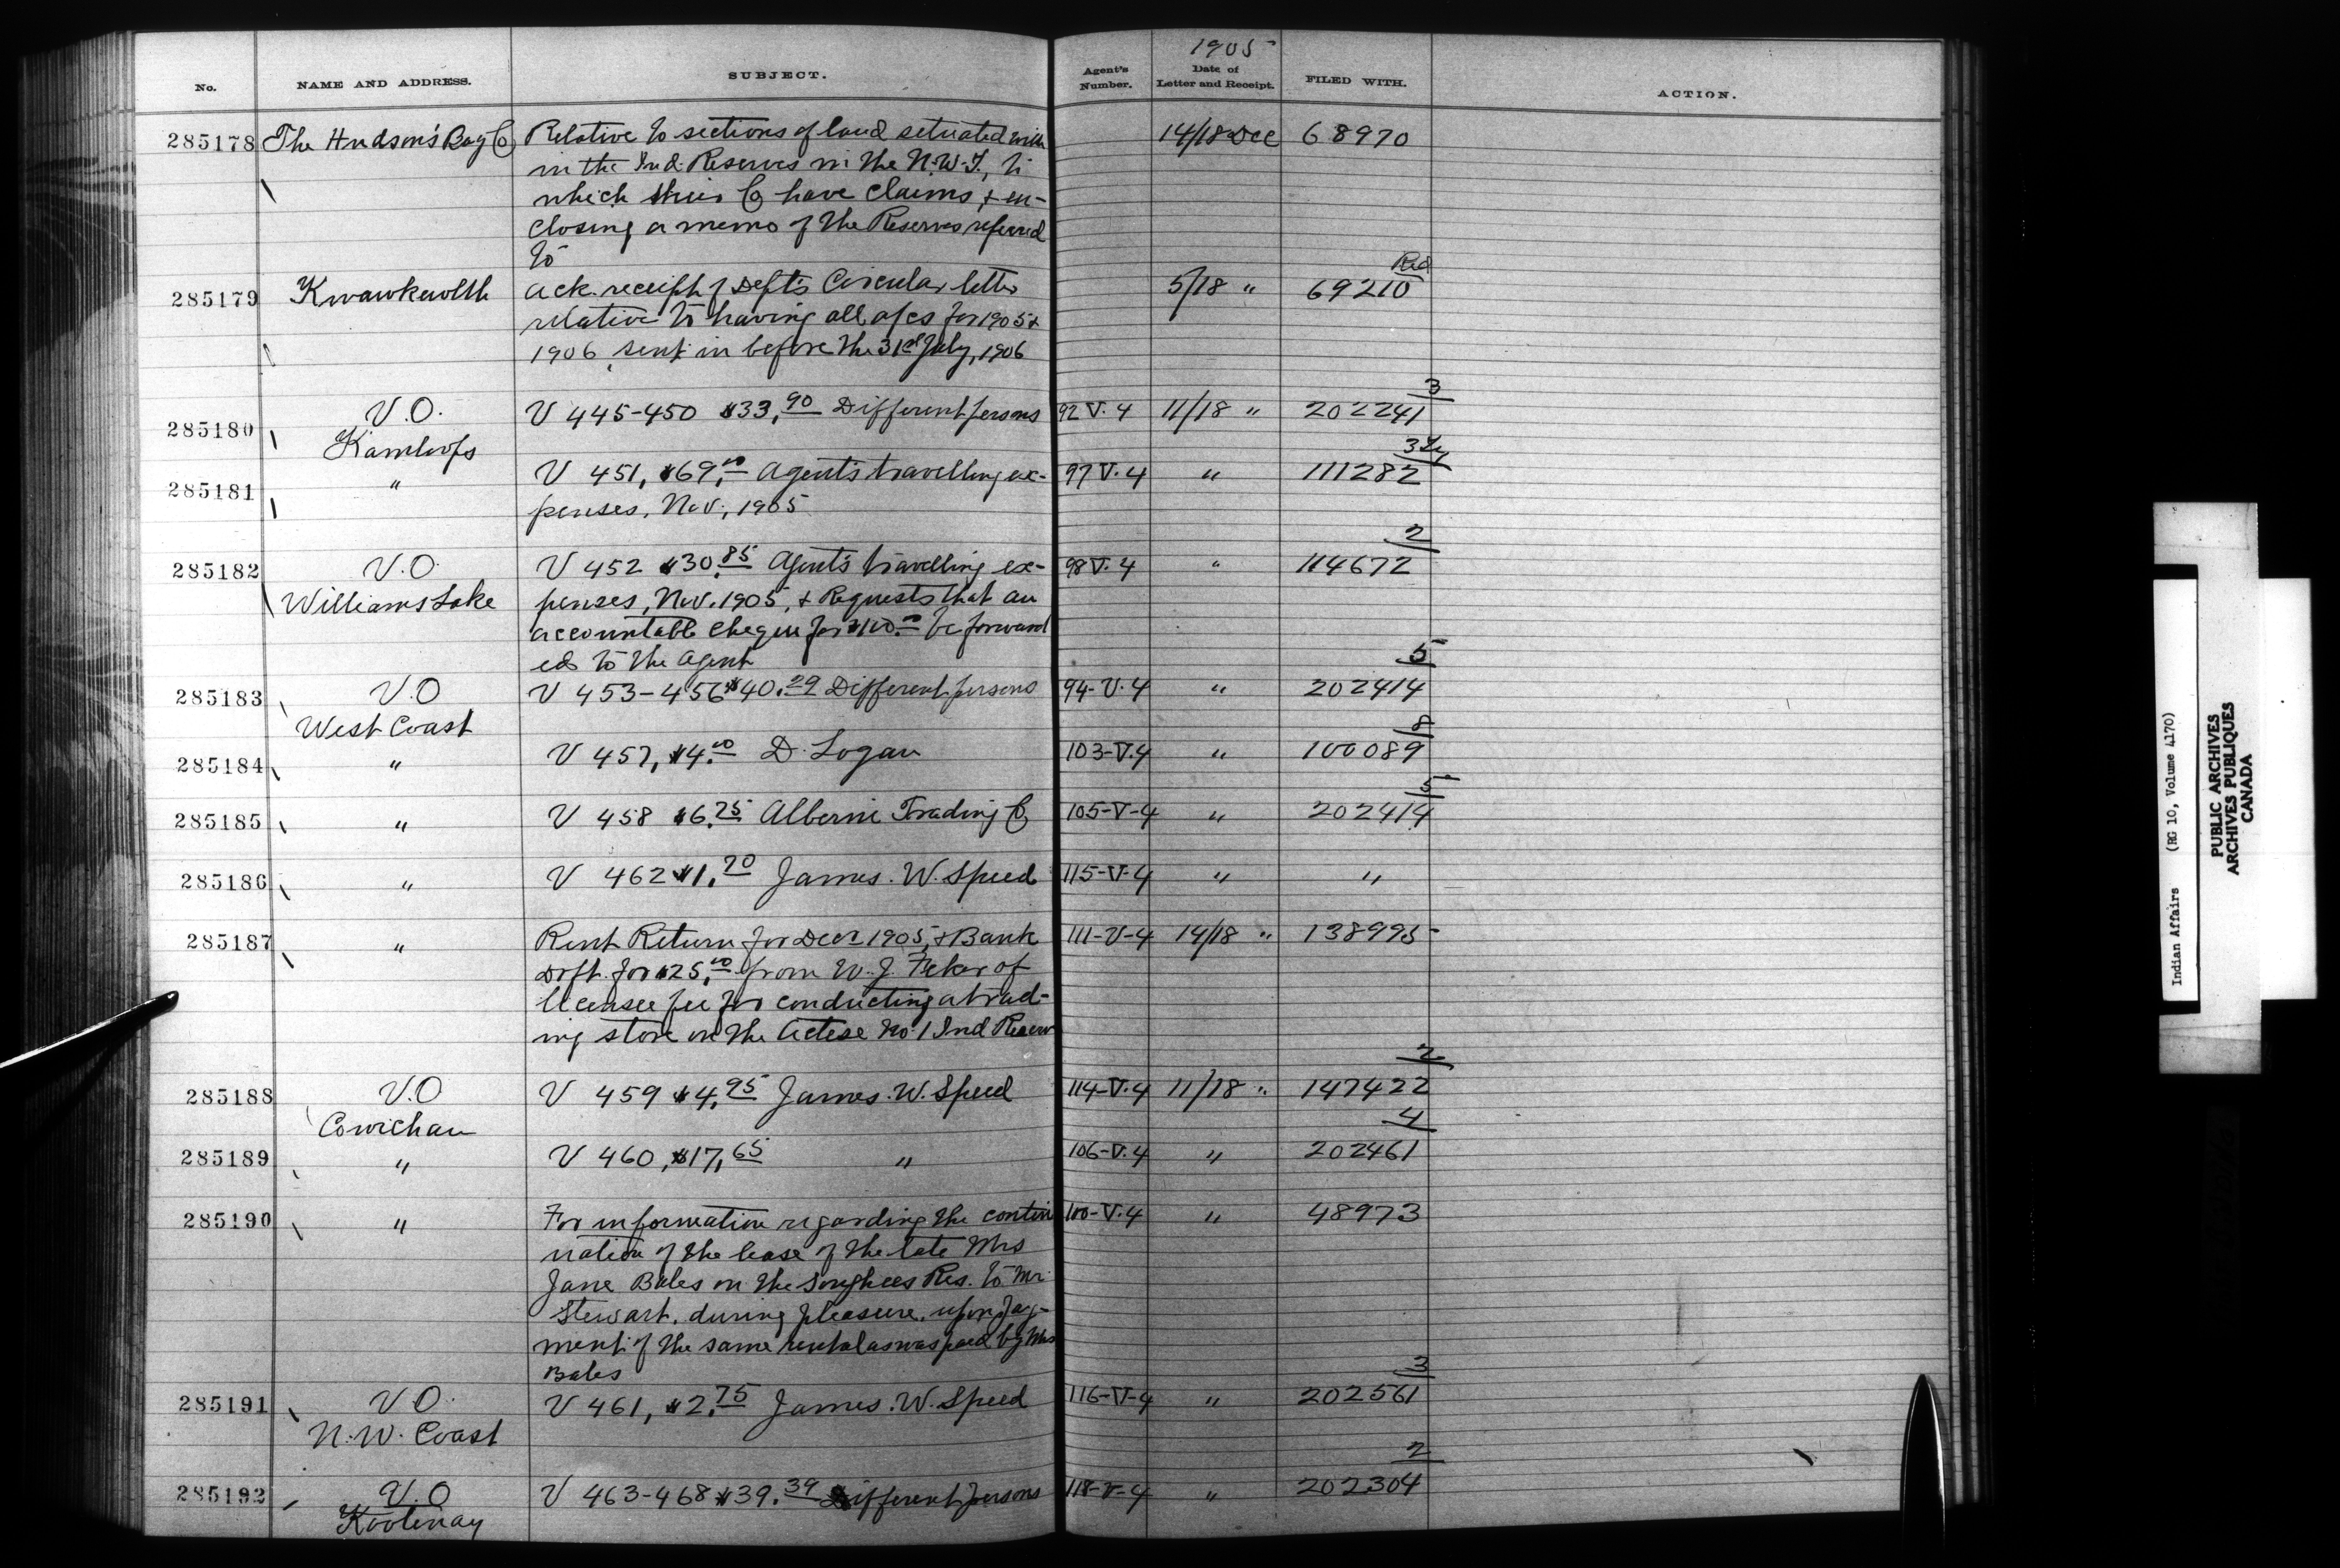 1905
No. NAME AND ADDRESS. SUBJECT. Agent's Number. Date of Letter and Receipt. FILED WITH. ACTION.
285178 The Hudson's Bay Co Relative to sections of land setuated with 14/18 Dec 68970
in the Ind. Reserves in the N.W.T., to
which their Co have claims, & en-
closing a memo of the Reserves referred
to
285179 Kwawkewlth Ack. receipt of Dept's Circular letter 5/18 " 69210 Red
relative to having all a/cs for 1905 &
1906, sent in before the 31st July, 1906
285180 V.O. V 445-450 $33,90 Different persons 92 V. 4 11/18 " 202241 3
Kamloops
285181 " V 451, $69.00 Agent's travelling ex- 97 V. 4 " 111282
penses, Nov., 1905
285182 V.O. V 452 $30.85 Agent's travelling ex- 98 V. 4 " 114672 2
Williams Lake penses, Nov. 1905, & Requests that an
accountable cheque for $100.00 be forward
ed to the Agent
285183 V.O V 453-456 $40.29 Different persons 94-V.4 " 202414 5
West Coast
285184 " V 457, $4.00 D. Logan 103-V.4 " 100089 8
285185 " V 458 $6.25 Alberni Trading Co 105-V-4 " 202414 5
285186 " V 462 $1.70 James. W. Speed 115-V-4 " "
285187 " Rent Return for Decr 1905, & Bank 111-V-4 14/18 " 138995
Drft. for $25,00 from W. J. of
licensee fee for conducting a trad-
ing store on the No. 1 Ind Reserv
285188 V.O V 459 $4,95 James. W. Speed 114-V.4 11/18 " 147422 2
Cowichan
285189 " V 460, $17,65 " 106-V.4 " 202461 4
285190 " For information regarding the contin 100-V.4 " 48973
uation of the lease of the late Mrs
Jane Bales on the Songhees Res. to Mr.
Stewart, during pleasure, upon pay-
ment of the same rental as was paid by Mrs
Bales
285191 V.O. V 461, $2.75 James. W. Speed 116-V-4 " 202561 3
N.W. Coast
285192 V.O V 463-468 $39.39 Different persons 118-V-4 " 202304 2
Kootenay
Indian Affairs (RG 10, Volume 4170)
PUBLIC ARCHIVES
ARCHIVES PUBLIQUES
CANADA